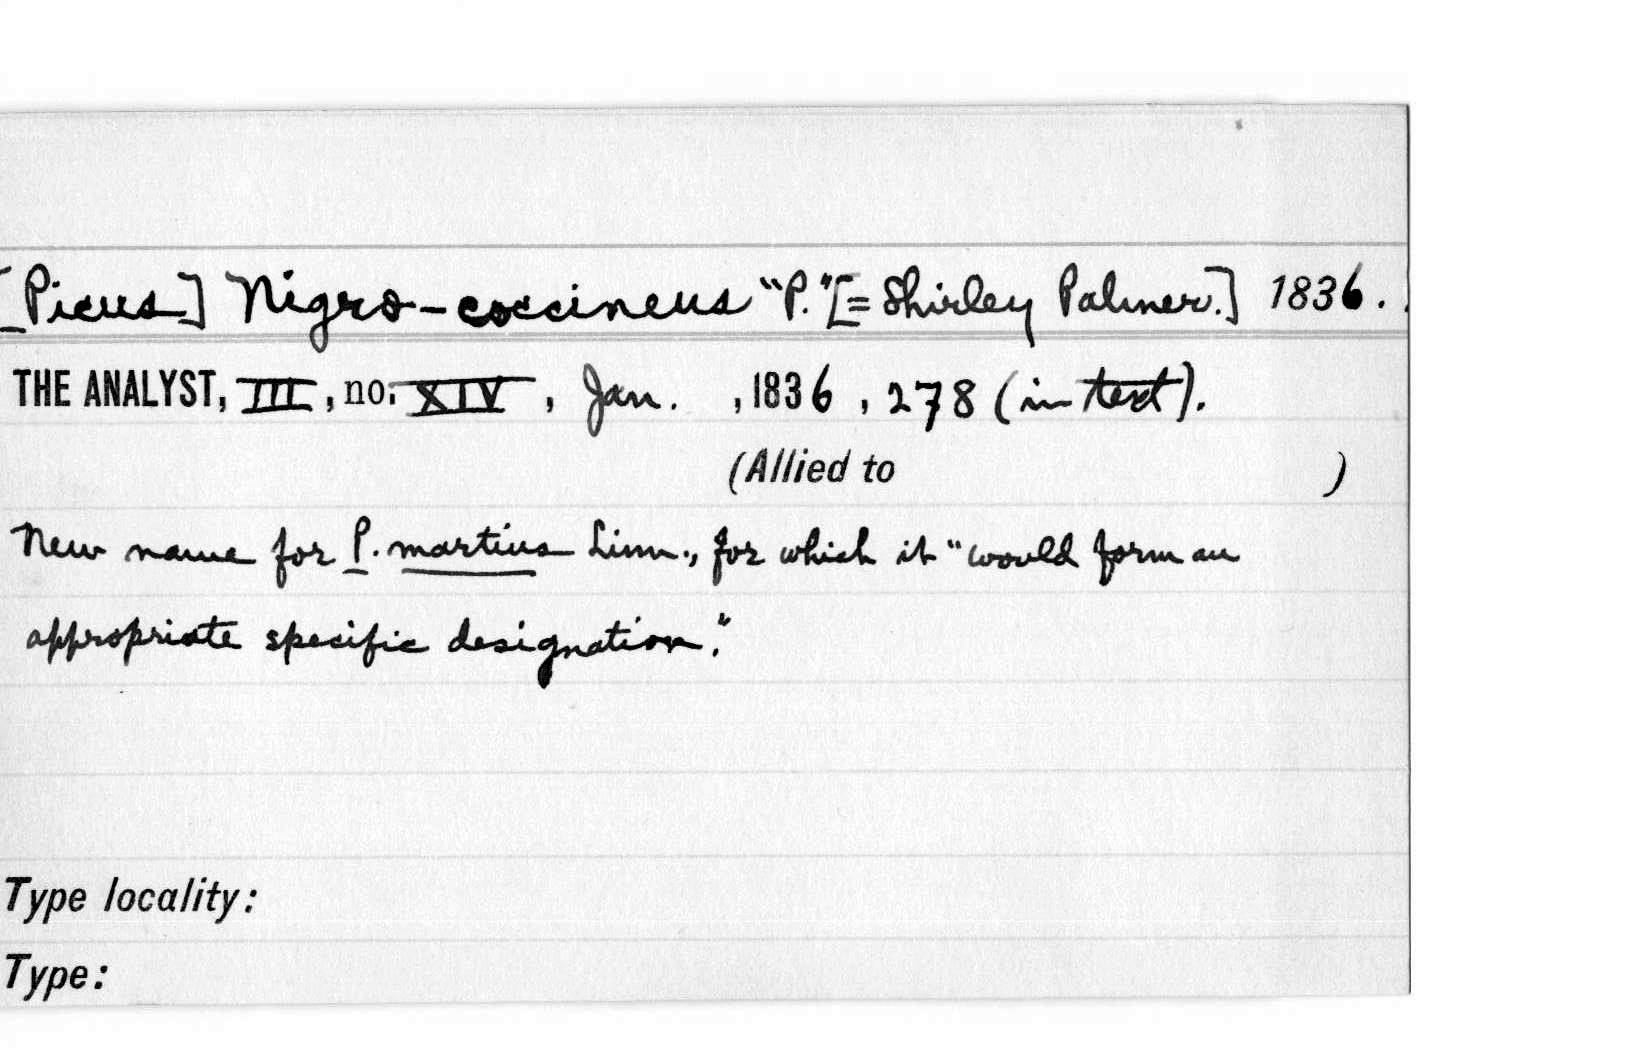 [Picus] Nigro-coccineus "P." [= Shirley Palmer.] 1836.
THE ANALYST, III, no. XIV, Jan. , 1836 , 278 (in text).
(Allied to )
New name for P. martius Linn., for which it "would form an
appropriate specific designation."
Type locality:
Type: